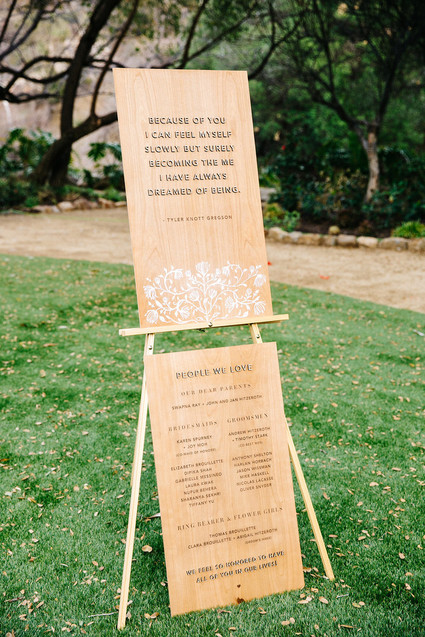 BECAUSE OF YOU
I CAN FEEL MYSELF
SLOWLY BUT SURELY
BECOMING THE ME
I HAVE ALWAYS
DREAMED OF BEING.
- TYLER KNOTT GREGSON
PEOPLE WE LOVE
OUR DEAR PARENTS
SWAPNA RAY + JOHN AND JAN HITZEROTH
BRIDESMAIDS
KAREN SPURNEY
+ JOY MOH
ELIZABETH BROUILLETTE
DIPIKA SHAH
GABRIELLE
LAURA
TIFFANY YU
GROOMSMEN
ANDREW HITZEROTH
+ TIMOTHY STARK
ANTHONY SHELTON
HARLAN
JASON
MIKA HASKELL
NICOLAS LACASSE
OLIVER SNYDER
RING BEARER & FLOWER GIRLS
THOMAS BROUILLETTE
CLARA BROUILLETTE + ABIGAIL HITZEROTH
WE FEEL SO HONORED TO HAVE
ALL OF YOU IN OUR LIVES!